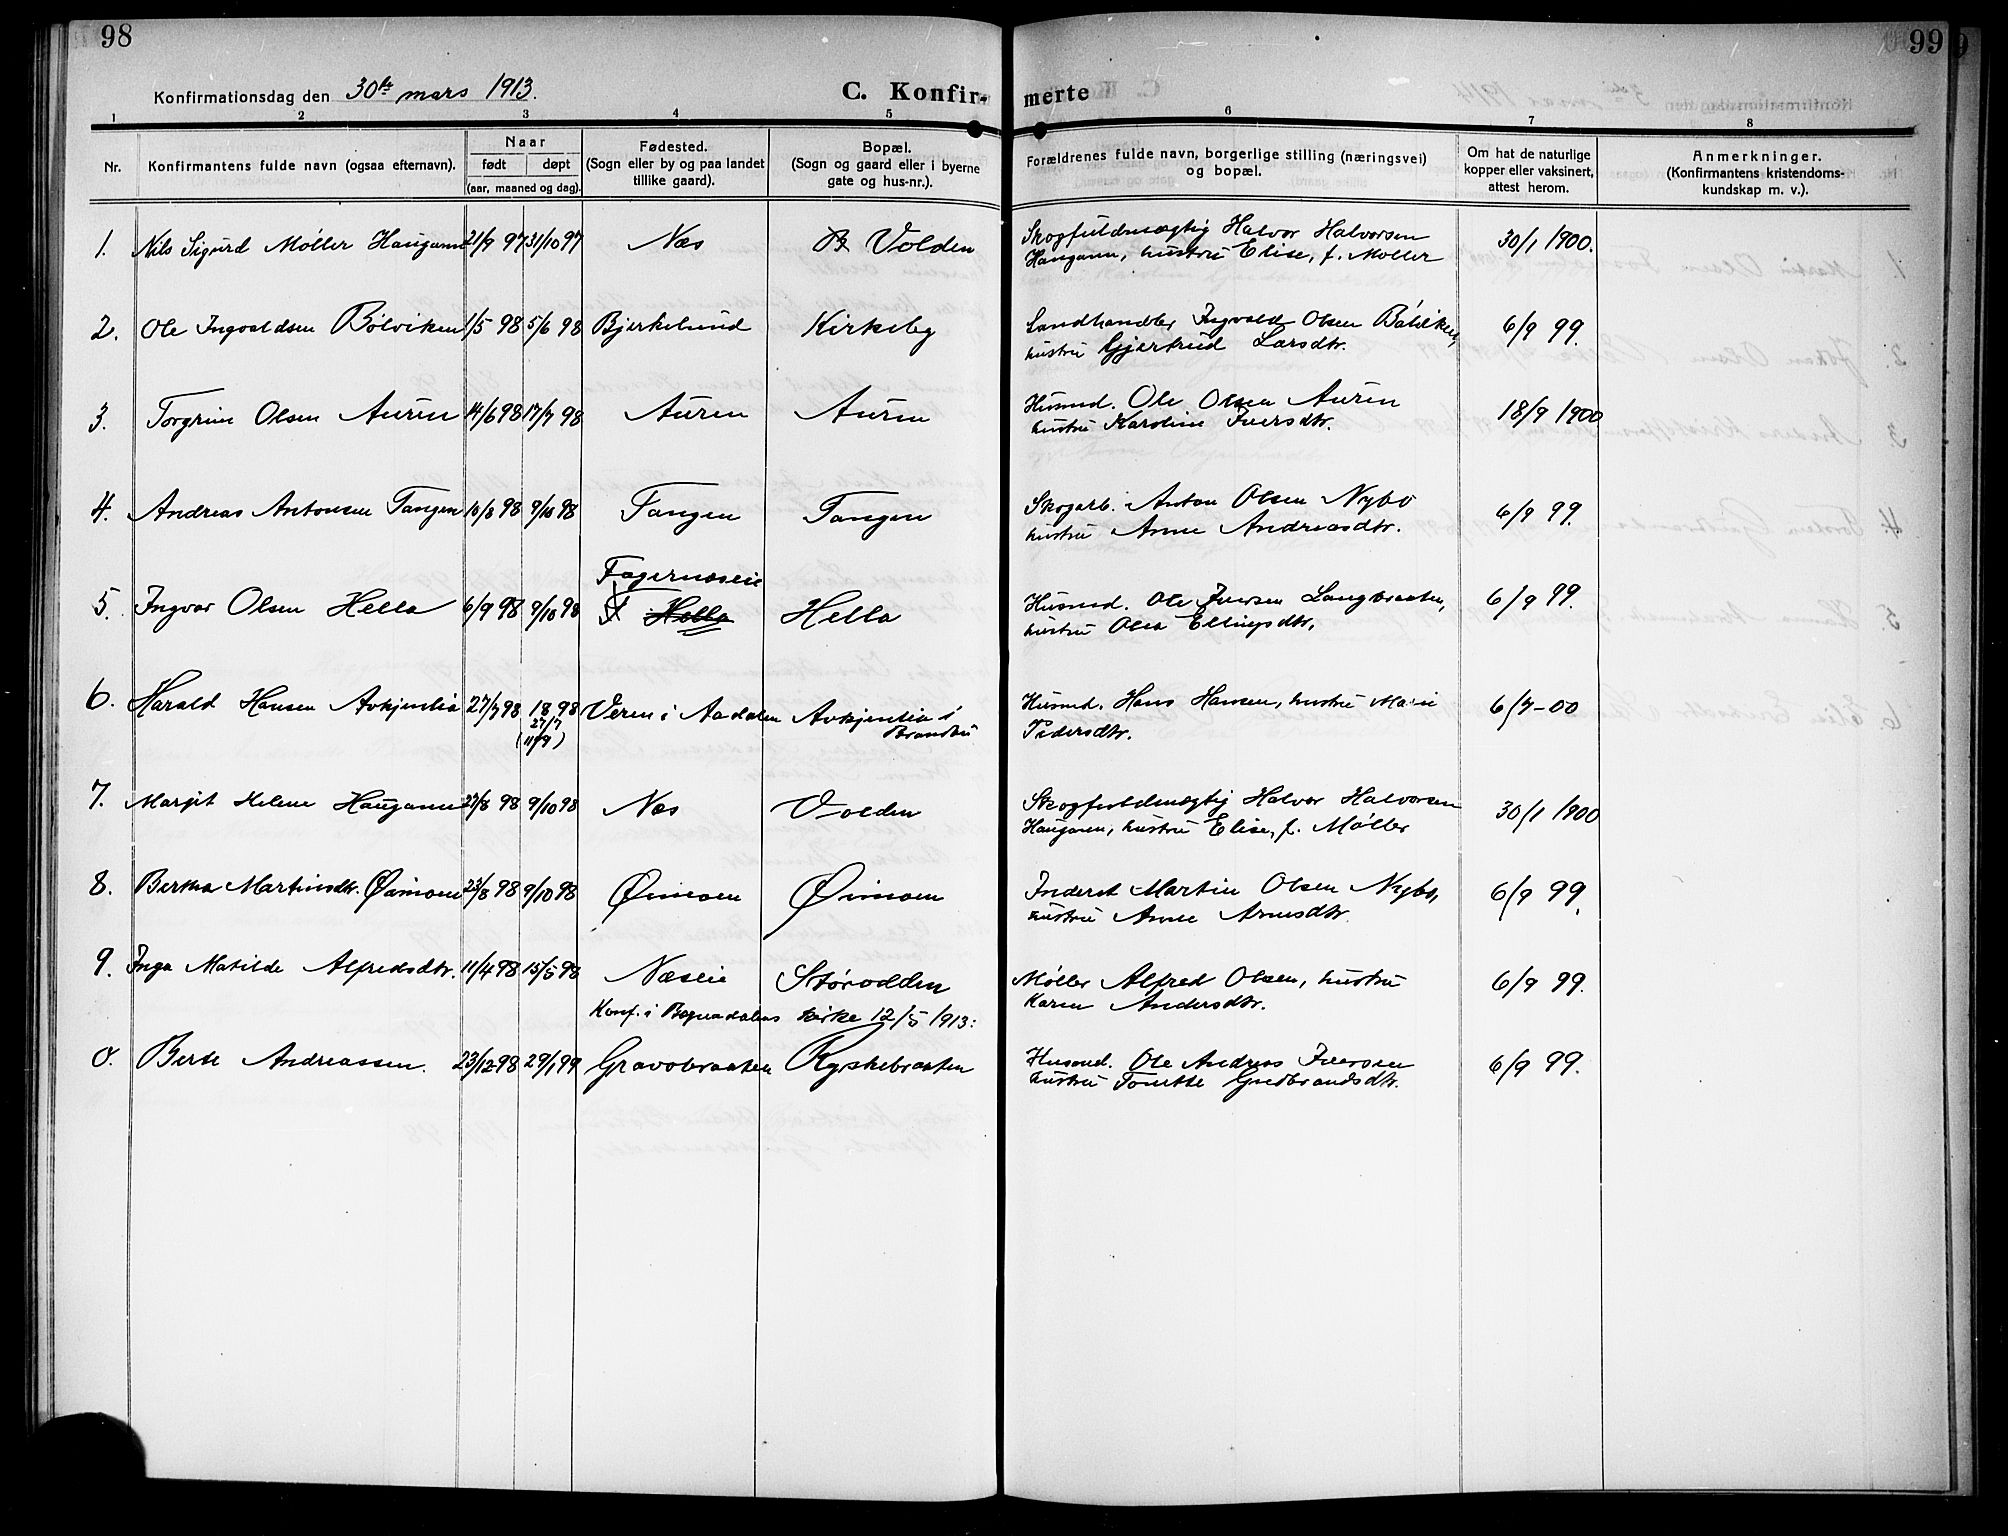 98
99
Konfirmationsdag den 30te mars 1913.
C. Konfir-
merte
1 2 3 4 5 6 7 8
Nr.
Konfirmantens fulde navn (ogsaa efternavn).
Naar
født døpt
(aar, maaned og dag).
Fødested.
(Sogn eller by og paa landet
tillike gaard).
Bopæl.
(Sogn og gaard eller i byerne
gate og hus-nr.).
Forældrenes fulde navn, borgerlige stilling (næringsvei)
og bopæl.
Om hat de naturlige
kopper eller vaksinert,
attest herom.
Anmerkninger.
(Konfirmantens kristendoms-
kundskap m. v.).
1. Nils Sigurd Møller Haugann 21/9 97 31/10 97 Næs Volden Skogfuldmægtig Halvor Halvorsen 30/1 1900.
Haugann, hustru Elise, f. Møller
2. Ole Ingvaldsen Bølviken 1/5 98 5/6 98 Bjerkelund Kirkeby Landhandler Ingvald Olsen Bølviken, 6/9 99.
hustru Gjertrud Larsdtr.
3. Torgrim Olsen Auren 14/6 98 17/7 98 Auren Auren Husmd. Ole Olsen Auren 18/9 1900
hustru Karoline Iversdtr.
4. Andreas Antonsen Tangen 10/8 98 9/10 98 Tangen Tangen Skogarb. Anton Olsen Nybo 6/9 99.
hustru Anne Andreasdtr.
Fagernæseie
5. Ingvar Olsen Hella 6/9 98 9/10 98 Hella Hella Husmd. Ole Iversen Langbraaten, 6/9 99.
hustru Olea Ellingsdtr.
6. Harald Hansen Avkjernlia 27/7 98 18 98 Veren i Aadalen Avkjernlia i Husmd. Hans Hansen, hustru Marie 6/7-00
27/7
(11/9)
Brandbu
Pedersdtr.
7. Margit Helene Haugann 27/8 98 9/10 98 Næs Volden Skogfuldmægtig Halvor Halvorsen 30/1 1900
Haugann, hustru Elise, f. Møller
8. Bertha Martinsdtr. Øimoen 23/8 98 9/10 98 Øimoen Øimoen Inderst Martin Olsen Nybo, 6/9 99.
hustru Anne Arnesdtr.
9. Inga Matilde Alfredsdtr. 11/4 98 15/5 98 Næseie Størodden Møller Alfred Olsen, hustru 6/9 99.
Karen Andersdtr.
Konf. i Begnadalens kirke 12/5 1913:
0. Berte Andreassen. 23/12-98 29/1 99 Gravobraaten Ryskebraaten Husmd. Ole Andreas Iversen 6/9 99.
hustru Tonette Gudbrandsdtr.